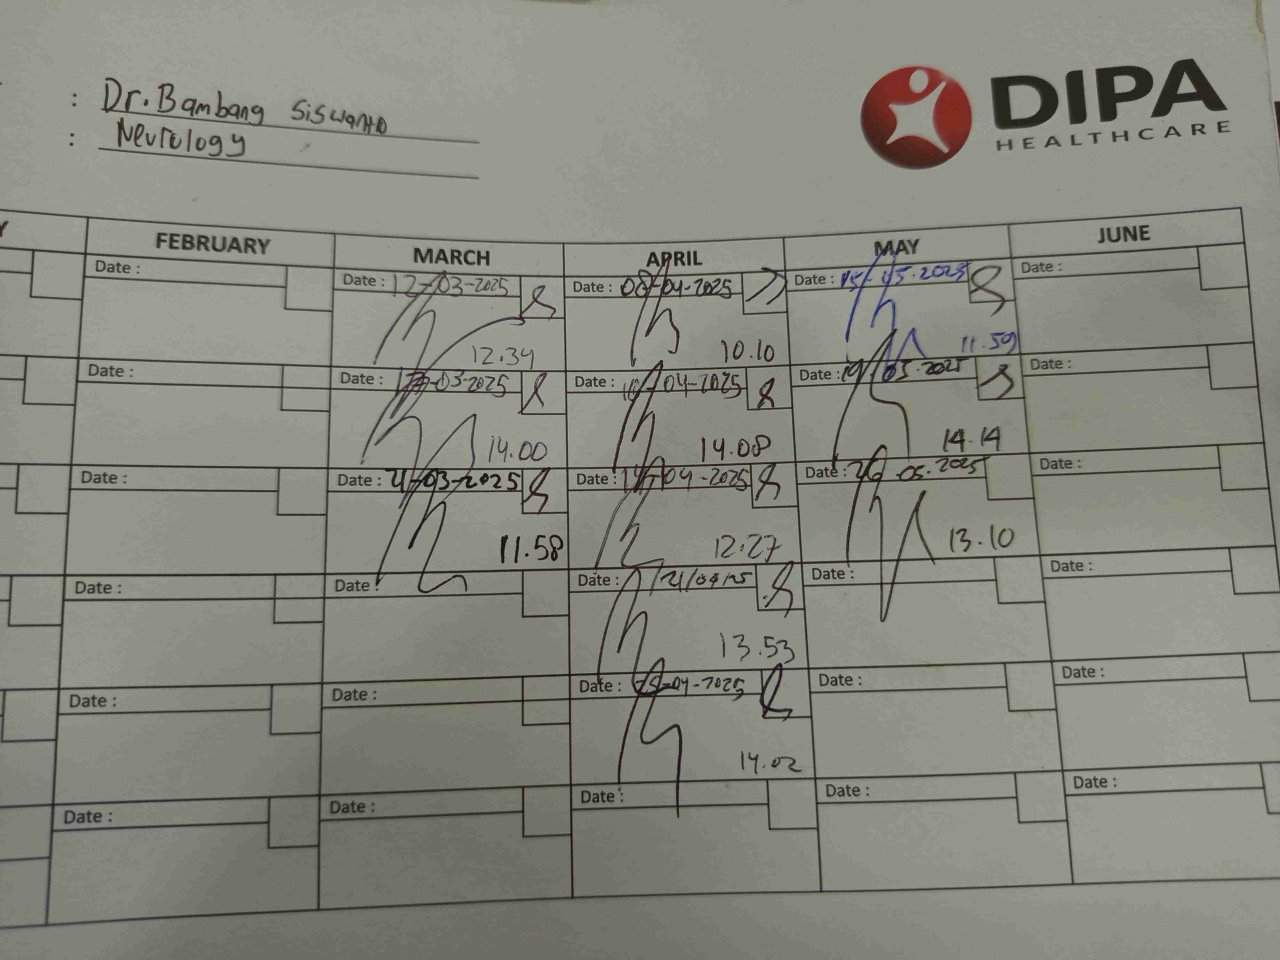 : Dr. Bambang Siswanto
: Neurology
DIPA
HEALTHCARE
Y FEBRUARY MARCH APRIL MAY JUNE
Date : Date : 12-03-2025 Date : 08-04-2025 Date : 15-05-2025 Date :
12.34 10.10 11.59
Date : Date : -03-2025 Date : 10-04-2025 Date : 19-05-2025 Date :
14.00 14.08 14.14
Date : Date : 21-03-2025 Date : -04-2025 Date : -05-2025 Date :
11.58 12.27 13.10
Date : Date : Date : 21/04/25 Date : Date :
13.53
Date : Date : Date : 25-04-2025 Date : Date :
14.02
Date : Date : Date : Date : Date :